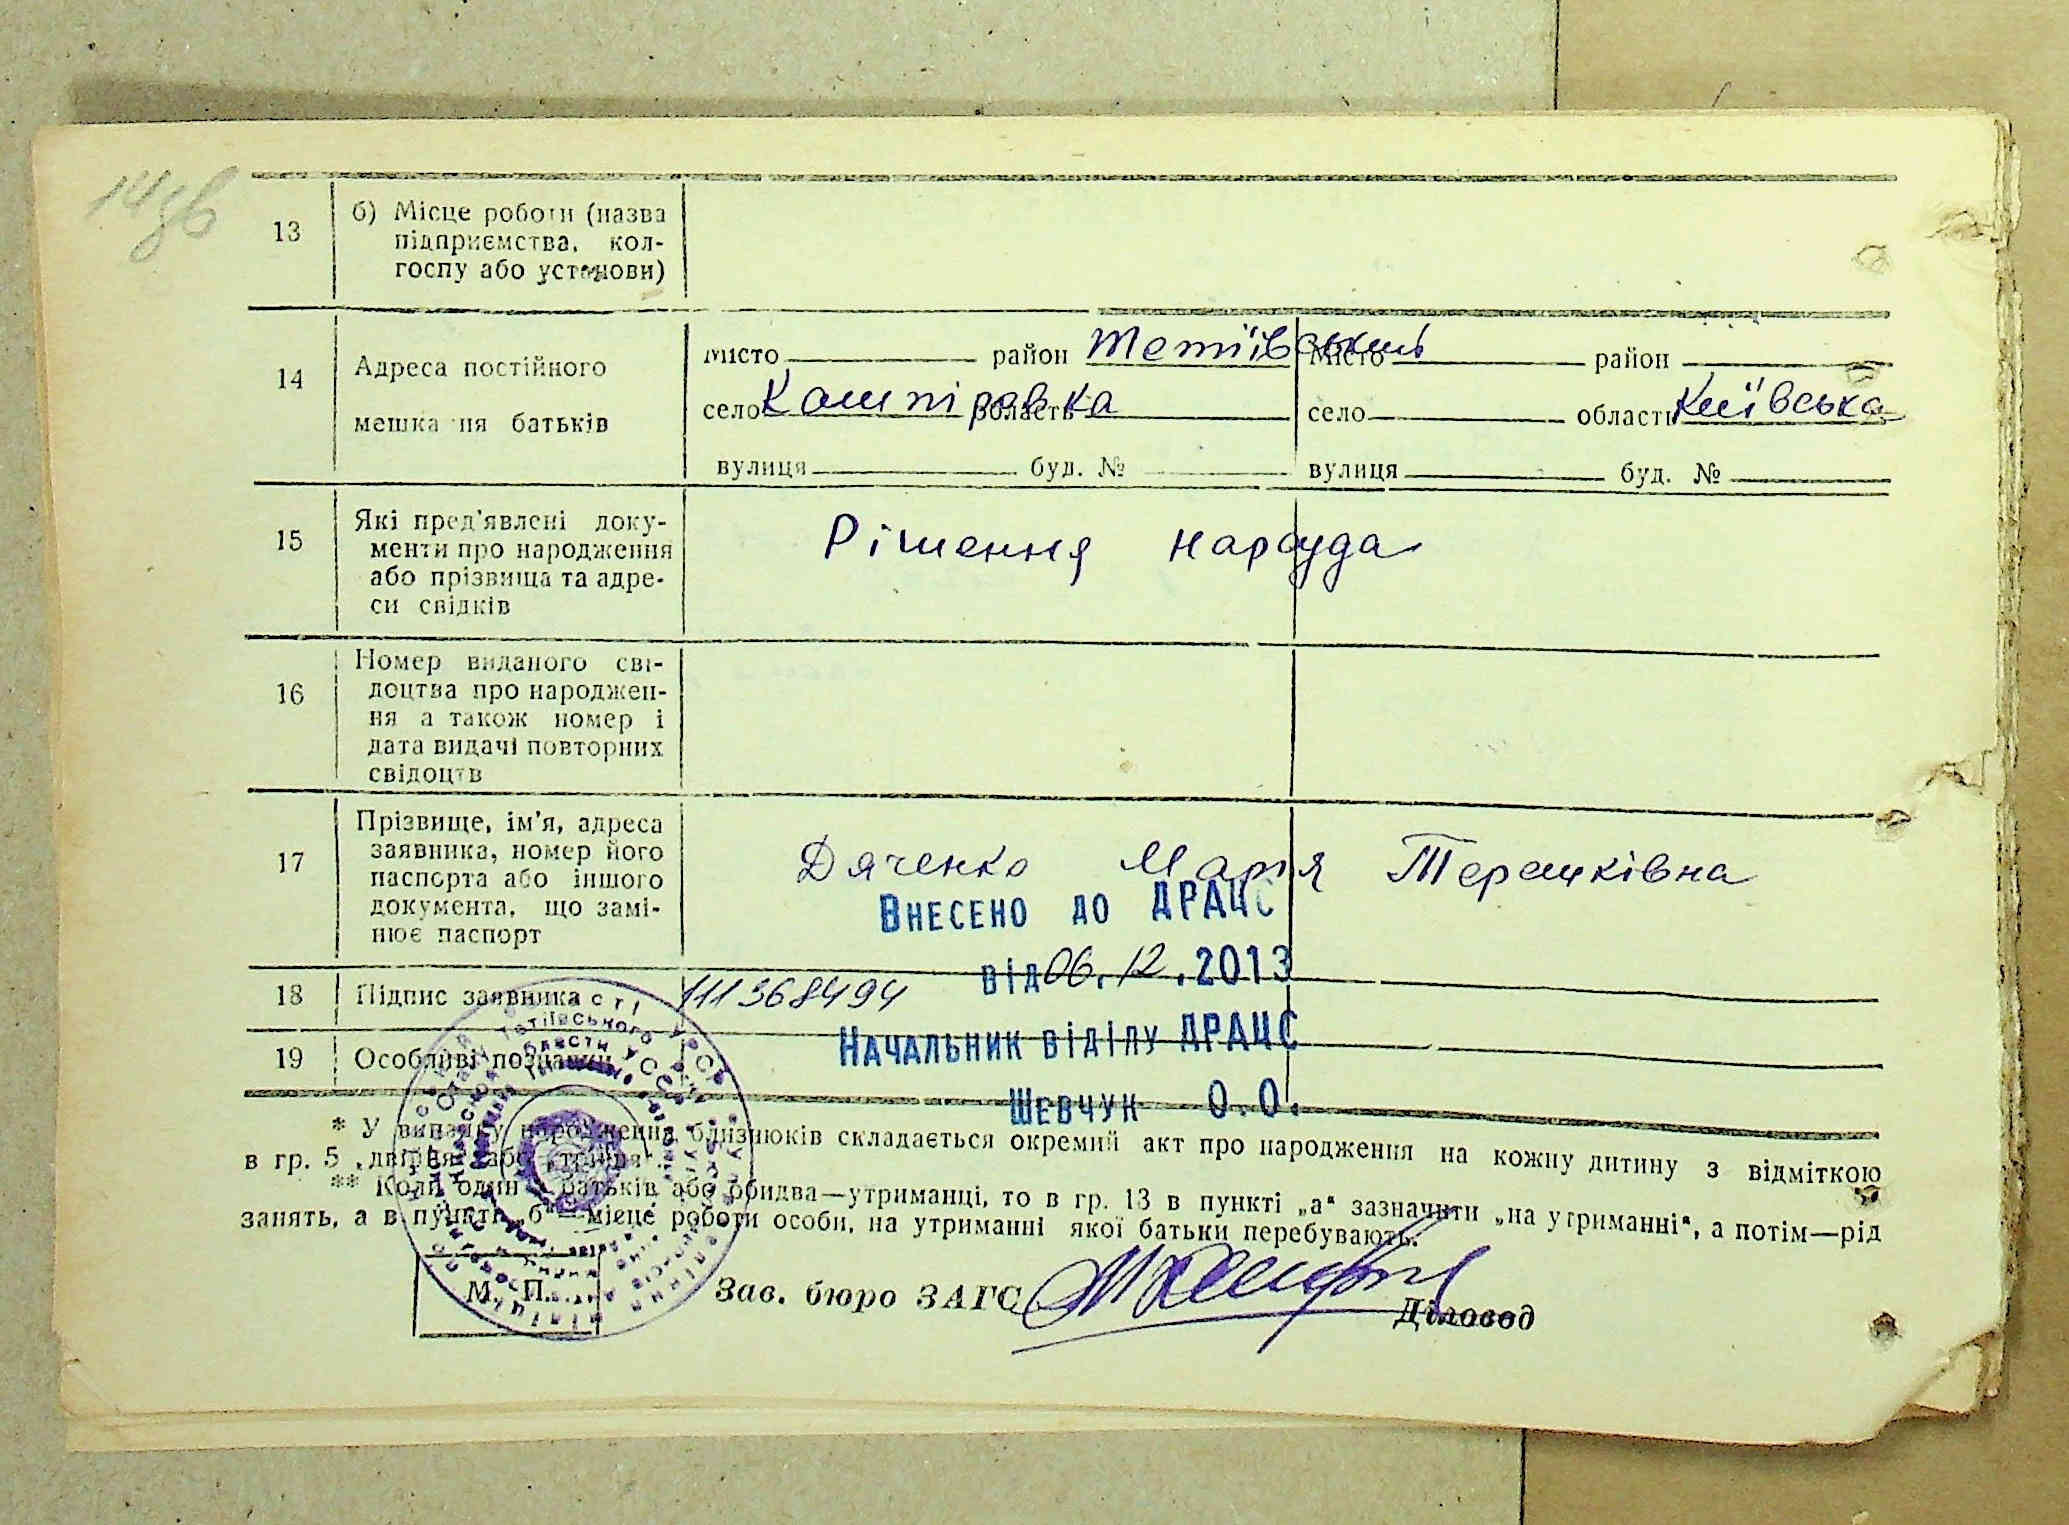 13
б) Місце роботи (назва
підприємства, кол-
госпу або установи)
14
Адреса постійного
мешкання батьків
місто район Тетіївський місто район
село Кашпірівка область село область Київська
вулиця буд. № вулиця буд. №
15
Які пред'явлені доку-
менти про народження
або прізвища та адре-
си свідків
Рішення нарсуда
16
Номер виданого сві-
доцтва про народжен-
ня а також номер і
дата видачі повторних
свідоцтв
17
Прізвище, ім'я, адреса
заявника, номер його
паспорта або іншого
документа, що замі-
нює паспорт
Дяченко Марія Терешківна
Внесено до ДРАЦС
від 06.12.2013
18
Підпис заявника
111368494
Начальник відділу ДРАЦС
19
Особливі позначки
Шевчук О.О.
* У випадку народження близнюків складається окремий акт про народження на кожну дитину з відміткою
в гр. 5 „двійня“ або „трійня“.
** Коли один з батьків або обидва—утриманці, то в гр. 13 в пункті „а“ зазначити „на утриманні“, а потім—рід
занять, а в пункті „б“—місце роботи особи, на утриманні якої батьки перебувають.
М. П.
Зав. бюро ЗАГС
Діловод